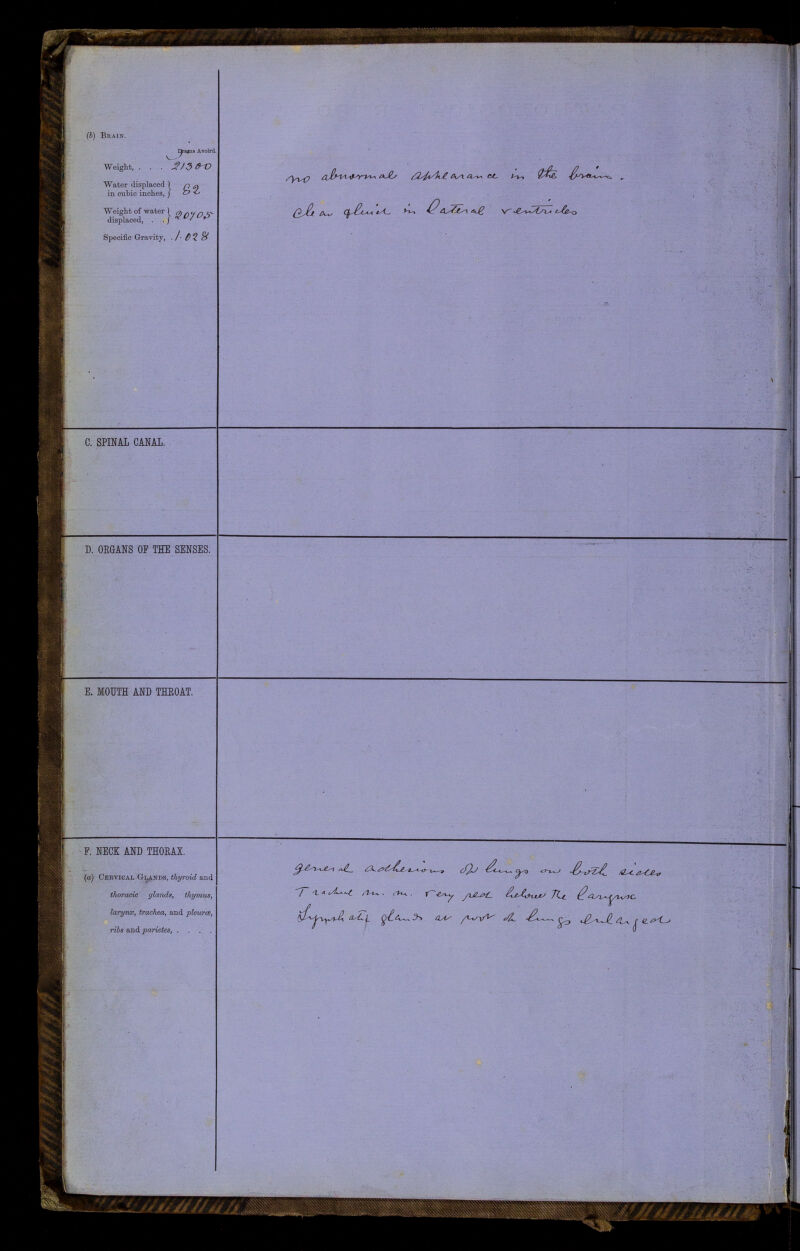 (b) BRAIN.
Grains Avoird.
Weight, . . . 21300
Water displaced in cubic inches, } 82
Weight of water displaced, . . } 20705
Specific Gravity, . 1.028
no abnormal appearance in the brain .
Clear fluid in lateral ventricles
C. SPINAL CANAL.
D. ORGANS OF THE SENSES.
E. MOUTH AND THROAT.
F. NECK AND THORAX.
(a) CERVICAL GLANDS, thyroid and
thoracic glands, thymus,
larynx, trachea, and pleuræ,
ribs and parietes, . . . .
general adhesions of lungs on both sides
Tracheal m. m. very red below the larynx
Lymphatic glands at root of lungs enlarged